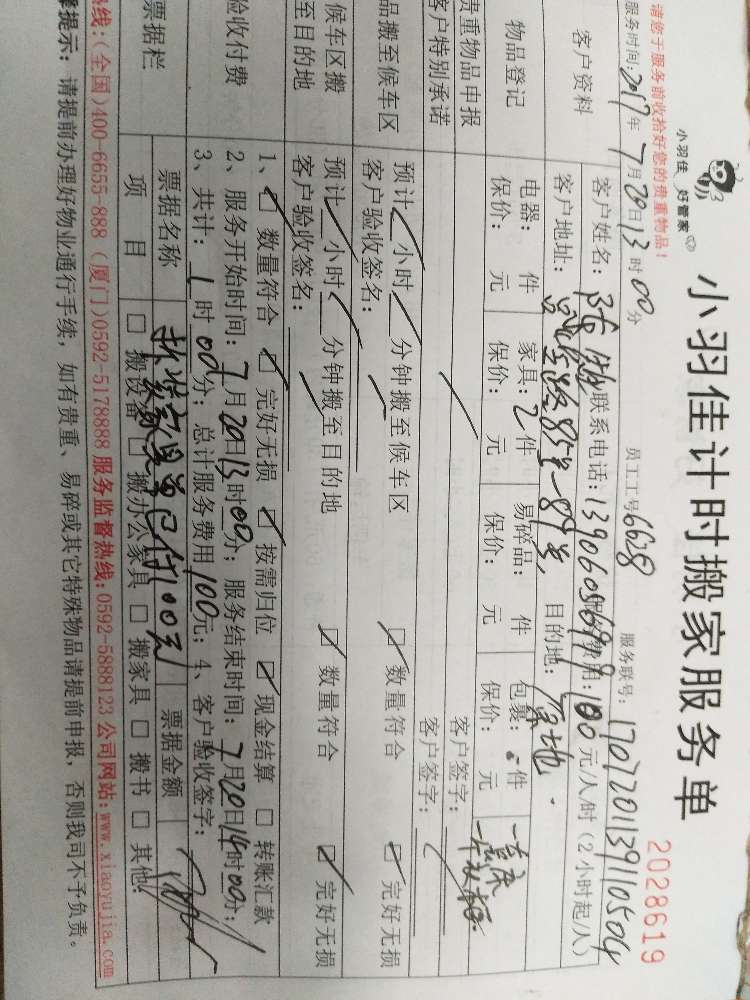 小羽佳 好管家
小羽佳计时搬家服务单
2028619
请您于服务前收拾好您的贵重物品！
员工工号6628
服务联号：1707201139110504
服务时间：2017年7月20日13时00分
客户资料
客户姓名：
联系电话：13906056979
费用：100元/人/时（2小时起/人）
客户地址：
85号-89号
目的地：原地
物品登记
电器： 件 家具：2件 易碎品： 件 包裹： 件
保价： 元 保价： 元 保价： 元 保价： 元
贵重物品申报
客户签字：
客户特别承诺
客户签字：
品搬至候车区
预计 小时 分钟搬至候车区 数量符合 完好无损
客户验收签名：
候车区搬至目的地
预计 小时 分钟搬至目的地 数量符合 完好无损
客户验收签名：
验收付费
1、 数量符合 完好无损 按需归位 现金结算 转账汇款
2、服务开始时间：7月20日13时00分；服务结束时间：7月20日14时00分；
3、共计：1时00分；总计服务费用100元；4、客户验收签字：
票据栏
票据名称
票据金额
已付100元
项目
搬设备 搬办公家具 搬家具 搬书 其他：
热线：(全国)400-6655-888 (厦门)0592-5178888 服务监督热线：0592-5888123 公司网站：www.xiaoyujia.com
提示：请提前办理好物业通行手续，如有贵重、易碎或其它特殊物品请提前申报，否则我司不予负责。